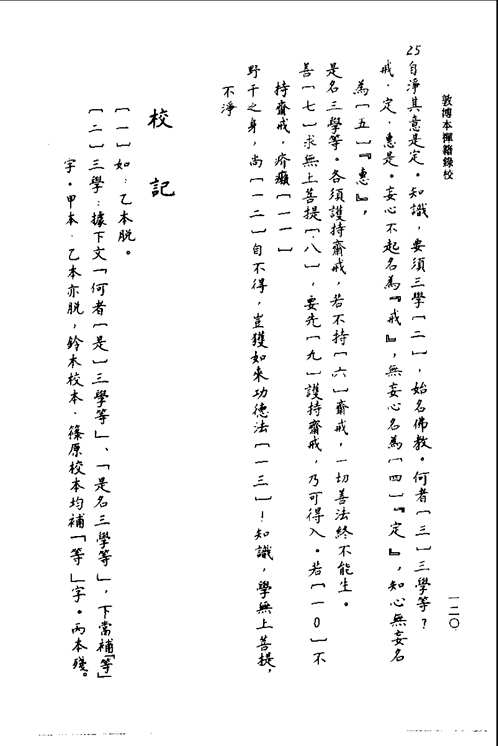 敦博本禪籍錄校
一二〇
25自淨其意是定。知識，要須三學〔二〕，始名佛教。何者〔三〕三學等？
戒、定、惠是。妄心不起名為『戒』，無妄心名為〔四〕『定』，知心無妄名
為〔五〕『惠』，
是名三學等。各須護持齋戒，若不持〔六〕齋戒，一切善法終不能生。
善〔七〕求無上菩提〔八〕，要先〔九〕護持齋戒，乃可得入。若〔一0〕不
持齋戒，疥癩〔一一〕
野干之身，尚〔一二〕自不得，豈獲如來功德法〔一三〕！知識，學無上菩提，
不淨
校記
〔一〕如：乙本脫。
〔二〕三學：據下文「何者〔是〕三學等」、「是名三學等」，下當補「等」
字。甲本、乙本亦脫，鈴木校本、篠原校本均補「等」字。丙本殘。